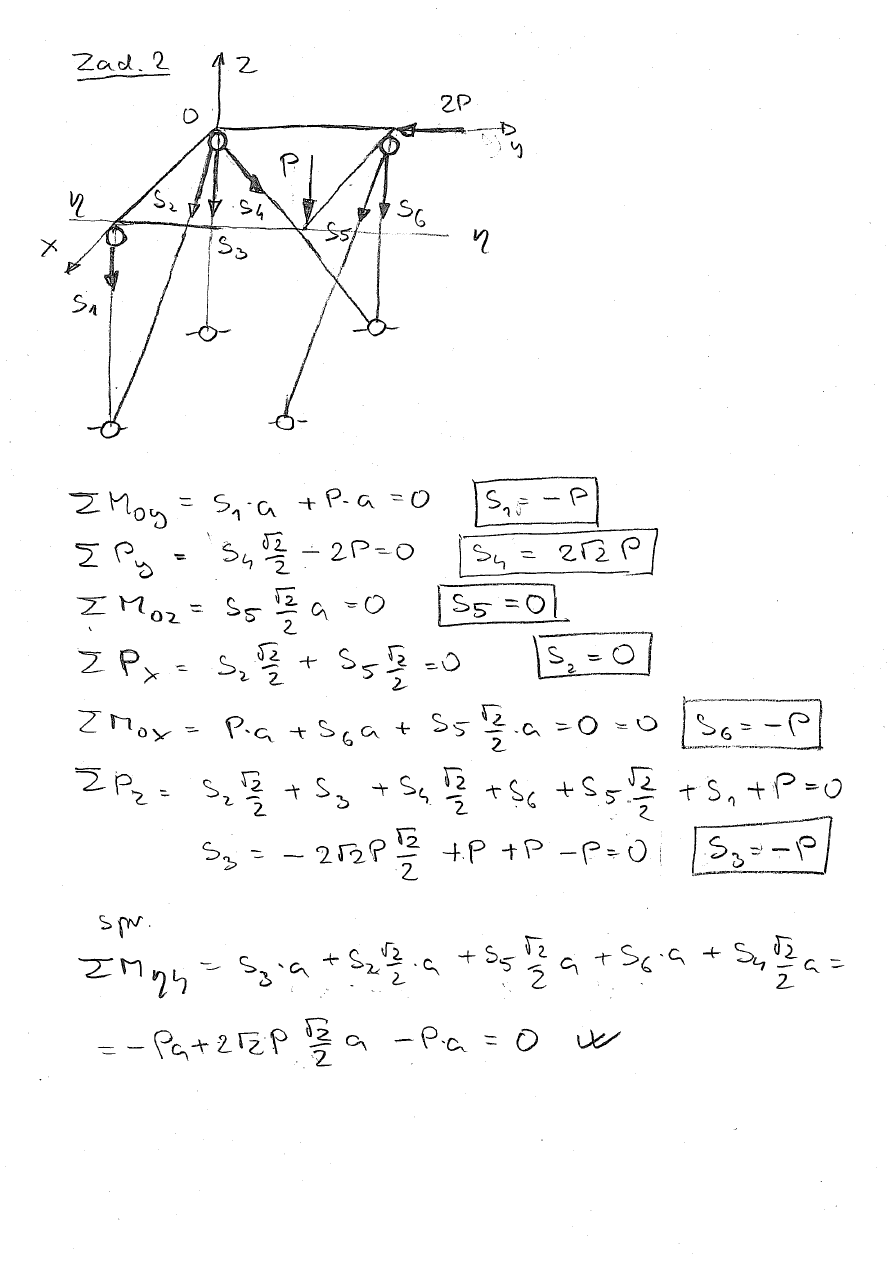 Zad. 2
Z
O
2P
y
P
η
S2
S4
S5
S6
η
x
S3
S1
ΣMoy = S1·a + P·a = 0 S1 = -P
ΣPy = S4 √2/2 - 2P=0 S4 = 2√2 P
ΣMoz = S5 √2/2 a =0 S5 = 0
ΣPx = S2 √2/2 + S5 √2/2 =0 S2 = 0
ΣMox = P·a + S6 a + S5 √2/2 ·a = 0 = 0 S6 = -P
ΣPz = S2 √2/2 + S3 + S4 √2/2 + S6 + S5 √2/2 + S1 + P = 0
S3 = - 2√2P √2/2 + P + P - P = 0 S3 = -P
spr.
ΣMηη = S3·a + S2 √2/2 ·a + S5 √2/2 a + S6·a + S4 √2/2 a =
= - Pa + 2√2P √2/2 a - P·a = 0